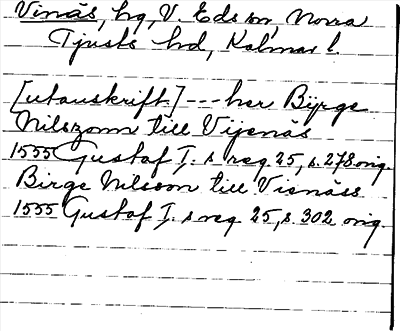 Vinäs, hg, V. Eds sn, Norra
Tjusts hd, Kalmar l.
[utanskrift:] --- her Bÿrge
Nilszonn till Vijenäs
1555 Gustaf I:s reg. 25, s. 278 orig.
Birge Nilsson till Vienäss
1555 Gustaf I:s reg. 25, s. 302 orig.